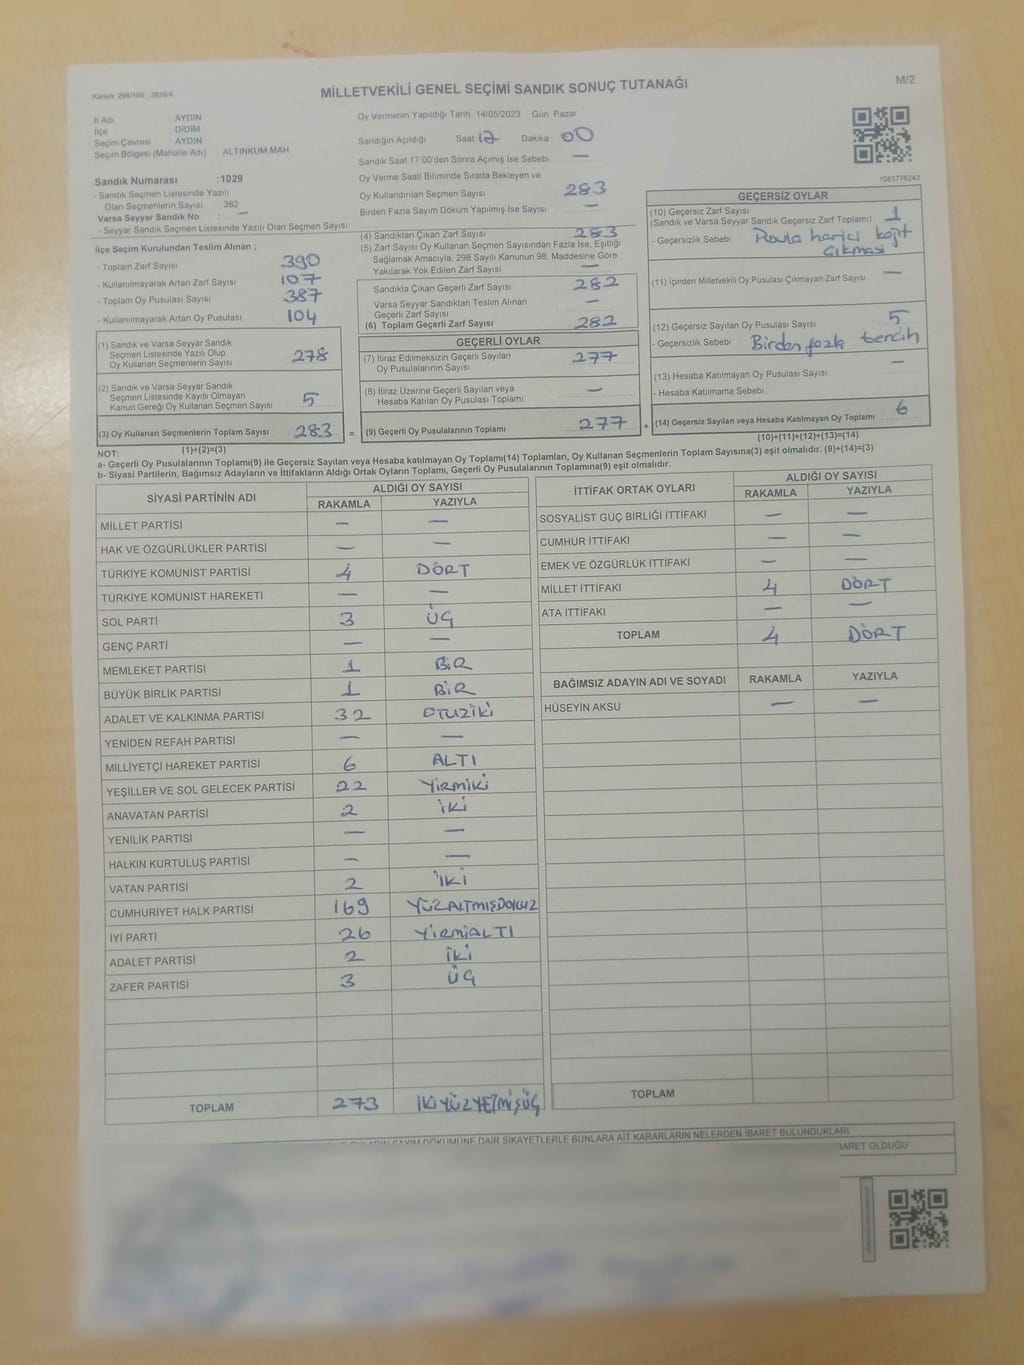 Kanun: 298/105 , 2839/4
MİLLETVEKİLİ GENEL SEÇİMİ SANDIK SONUÇ TUTANAĞI
M/2
İl Adı : AYDIN
İlçe : DİDİM
Seçim Çevresi : AYDIN
Seçim Bölgesi (Mahalle Adı) : ALTINKUM MAH.
Sandık Numarası :1029
- Sandık Seçmen Listesinde Yazılı
Olan Seçmenlerin Sayısı : 382
Varsa Seyyar Sandık No : —
- Seyyar Sandık Seçmen Listesinde Yazılı Olan Seçmen Sayısı:
Oy Vermenin Yapıldığı Tarih 14/05/2023 Gün Pazar
Sandığın Açıldığı Saat 17 Dakika 00
Sandık Saat 17:00'den Sonra Açımış İse Sebebi —
Oy Verme Saati Bitiminde Sırada Bekleyen ve
Oy Kullandırılan Seçmen Sayısı 283
Birden Fazla Sayım Döküm Yapılmış İse Sayısı —
1083778243
İlçe Seçim Kurulundan Teslim Alınan ;
- Toplam Zarf Sayısı 390
- Kullanılmayarak Artan Zarf Sayısı 107
- Toplam Oy Pusulası Sayısı 387
- Kullanılmayarak Artan Oy Pusulası 104
(1) Sandık ve Varsa Seyyar Sandık
Seçmen Listesinde Yazılı Olup
Oy Kullanan Seçmenlerin Sayısı 278
(2) Sandık ve Varsa Seyyar Sandık
Seçmen Listesinde Kayıtlı Olmayan
Kanun Gereği Oy Kullanan Seçmen Sayısı 5
(3) Oy Kullanan Seçmenlerin Toplam Sayısı 283
(1)+(2)=(3)
(4) Sandıktan Çıkan Zarf Sayısı 283
(5) Zarf Sayısı Oy Kullanan Seçmen Sayısından Fazla İse, Eşitliği
Sağlamak Amacıyla, 298 Sayılı Kanunun 98. Maddesine Göre
Yakılarak Yok Edilen Zarf Sayısı —
Sandıkta Çıkan Geçerli Zarf Sayısı 282
Varsa Seyyar Sandıktan Teslim Alınan
Geçerli Zarf Sayısı —
(6) Toplam Geçerli Zarf Sayısı 282
GEÇERLİ OYLAR
(7) İtiraz Edilmeksizin Geçerli Sayılan
Oy Pusulalarının Sayısı 277
(8) İtiraz Üzerine Geçerli Sayılan veya
Hesaba Katılan Oy Pusulası Toplamı —
= (9) Geçerli Oy Pusulalarının Toplamı 277 +
GEÇERSİZ OYLAR
(10) Geçersiz Zarf Sayısı
(Sandık ve Varsa Seyyar Sandık Geçersiz Zarf Toplamı) 1
- Geçersizlik Sebebi : Pusula harici kağıt
çıkması
(11) İçinden Milletvekili Oy Pusulası Çıkmayan Zarf Sayısı —
(12) Geçersiz Sayılan Oy Pusulası Sayısı 5
- Geçersizlik Sebebi : Birden fazla tercih
(13) Hesaba Katılmayan Oy Pusulası Sayısı —
- Hesaba Katılmama Sebebi :
(14) Geçersiz Sayılan veya Hesaba Katılmayan Oy Toplamı : 6
(10)+(11)+(12)+(13)=(14)
NOT:
a- Geçerli Oy Pusulalarının Toplamı(9) ile Geçersiz Sayılan veya Hesaba katılmayan Oy Toplamı(14) Toplamları, Oy Kullanan Seçmenlerin Toplam Sayısına(3) eşit olmalıdır. (9)+(14)=(3)
b- Siyasi Partilerin, Bağımsız Adayların ve İttifakların Aldığı Ortak Oyların Toplamı, Geçerli Oy Pusulalarının Toplamına(9) eşit olmalıdır.
SİYASİ PARTİNİN ADI ALDIĞI OY SAYISI
RAKAMLA YAZIYLA
MİLLET PARTİSİ — —
HAK VE ÖZGÜRLÜKLER PARTİSİ — —
TÜRKİYE KOMÜNİST PARTİSİ 4 DÖRT
TÜRKİYE KOMÜNİST HAREKETİ — —
SOL PARTİ 3 ÜÇ
GENÇ PARTİ — —
MEMLEKET PARTİSİ 1 BİR
BÜYÜK BİRLİK PARTİSİ 1 BİR
ADALET VE KALKINMA PARTİSİ 32 OTUZİKİ
YENİDEN REFAH PARTİSİ — —
MİLLİYETÇİ HAREKET PARTİSİ 6 ALTI
YEŞİLLER VE SOL GELECEK PARTİSİ 22 YİRMİKİ
ANAVATAN PARTİSİ 2 İKİ
YENİLİK PARTİSİ — —
HALKIN KURTULUŞ PARTİSİ — —
VATAN PARTİSİ 2 İKİ
CUMHURİYET HALK PARTİSİ 169 YÜZALTMIŞDOKUZ
İYİ PARTİ 26 YİRMİALTI
ADALET PARTİSİ 2 İKİ
ZAFER PARTİSİ 3 ÜÇ
TOPLAM 273 İKİYÜZYETMİŞÜÇ
İTTİFAK ORTAK OYLARI ALDIĞI OY SAYISI
RAKAMLA YAZIYLA
SOSYALİST GÜÇ BİRLİĞİ İTTİFAKI — —
CUMHUR İTTİFAKI — —
EMEK VE ÖZGÜRLÜK İTTİFAKI — —
MİLLET İTTİFAKI 4 DÖRT
ATA İTTİFAKI — —
TOPLAM 4 DÖRT
BAĞIMSIZ ADAYIN ADI VE SOYADI RAKAMLA YAZIYLA
HÜSEYİN AKSU — —
TOPLAM
SAYIM DÖKÜMÜNE DAİR ŞİKAYETLERLE BUNLARA AİT KARARLARIN NELERDEN İBARET BULUNDUKLARI
İBARET OLDUĞU